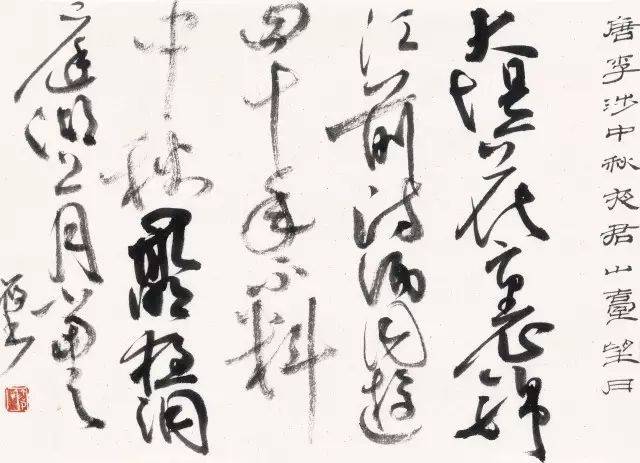 唐李涉中秋夜君山臺望月
大堤花裏錦
江前詩酒同遊
四十年不料
中秋最明洞
庭湖上月當天